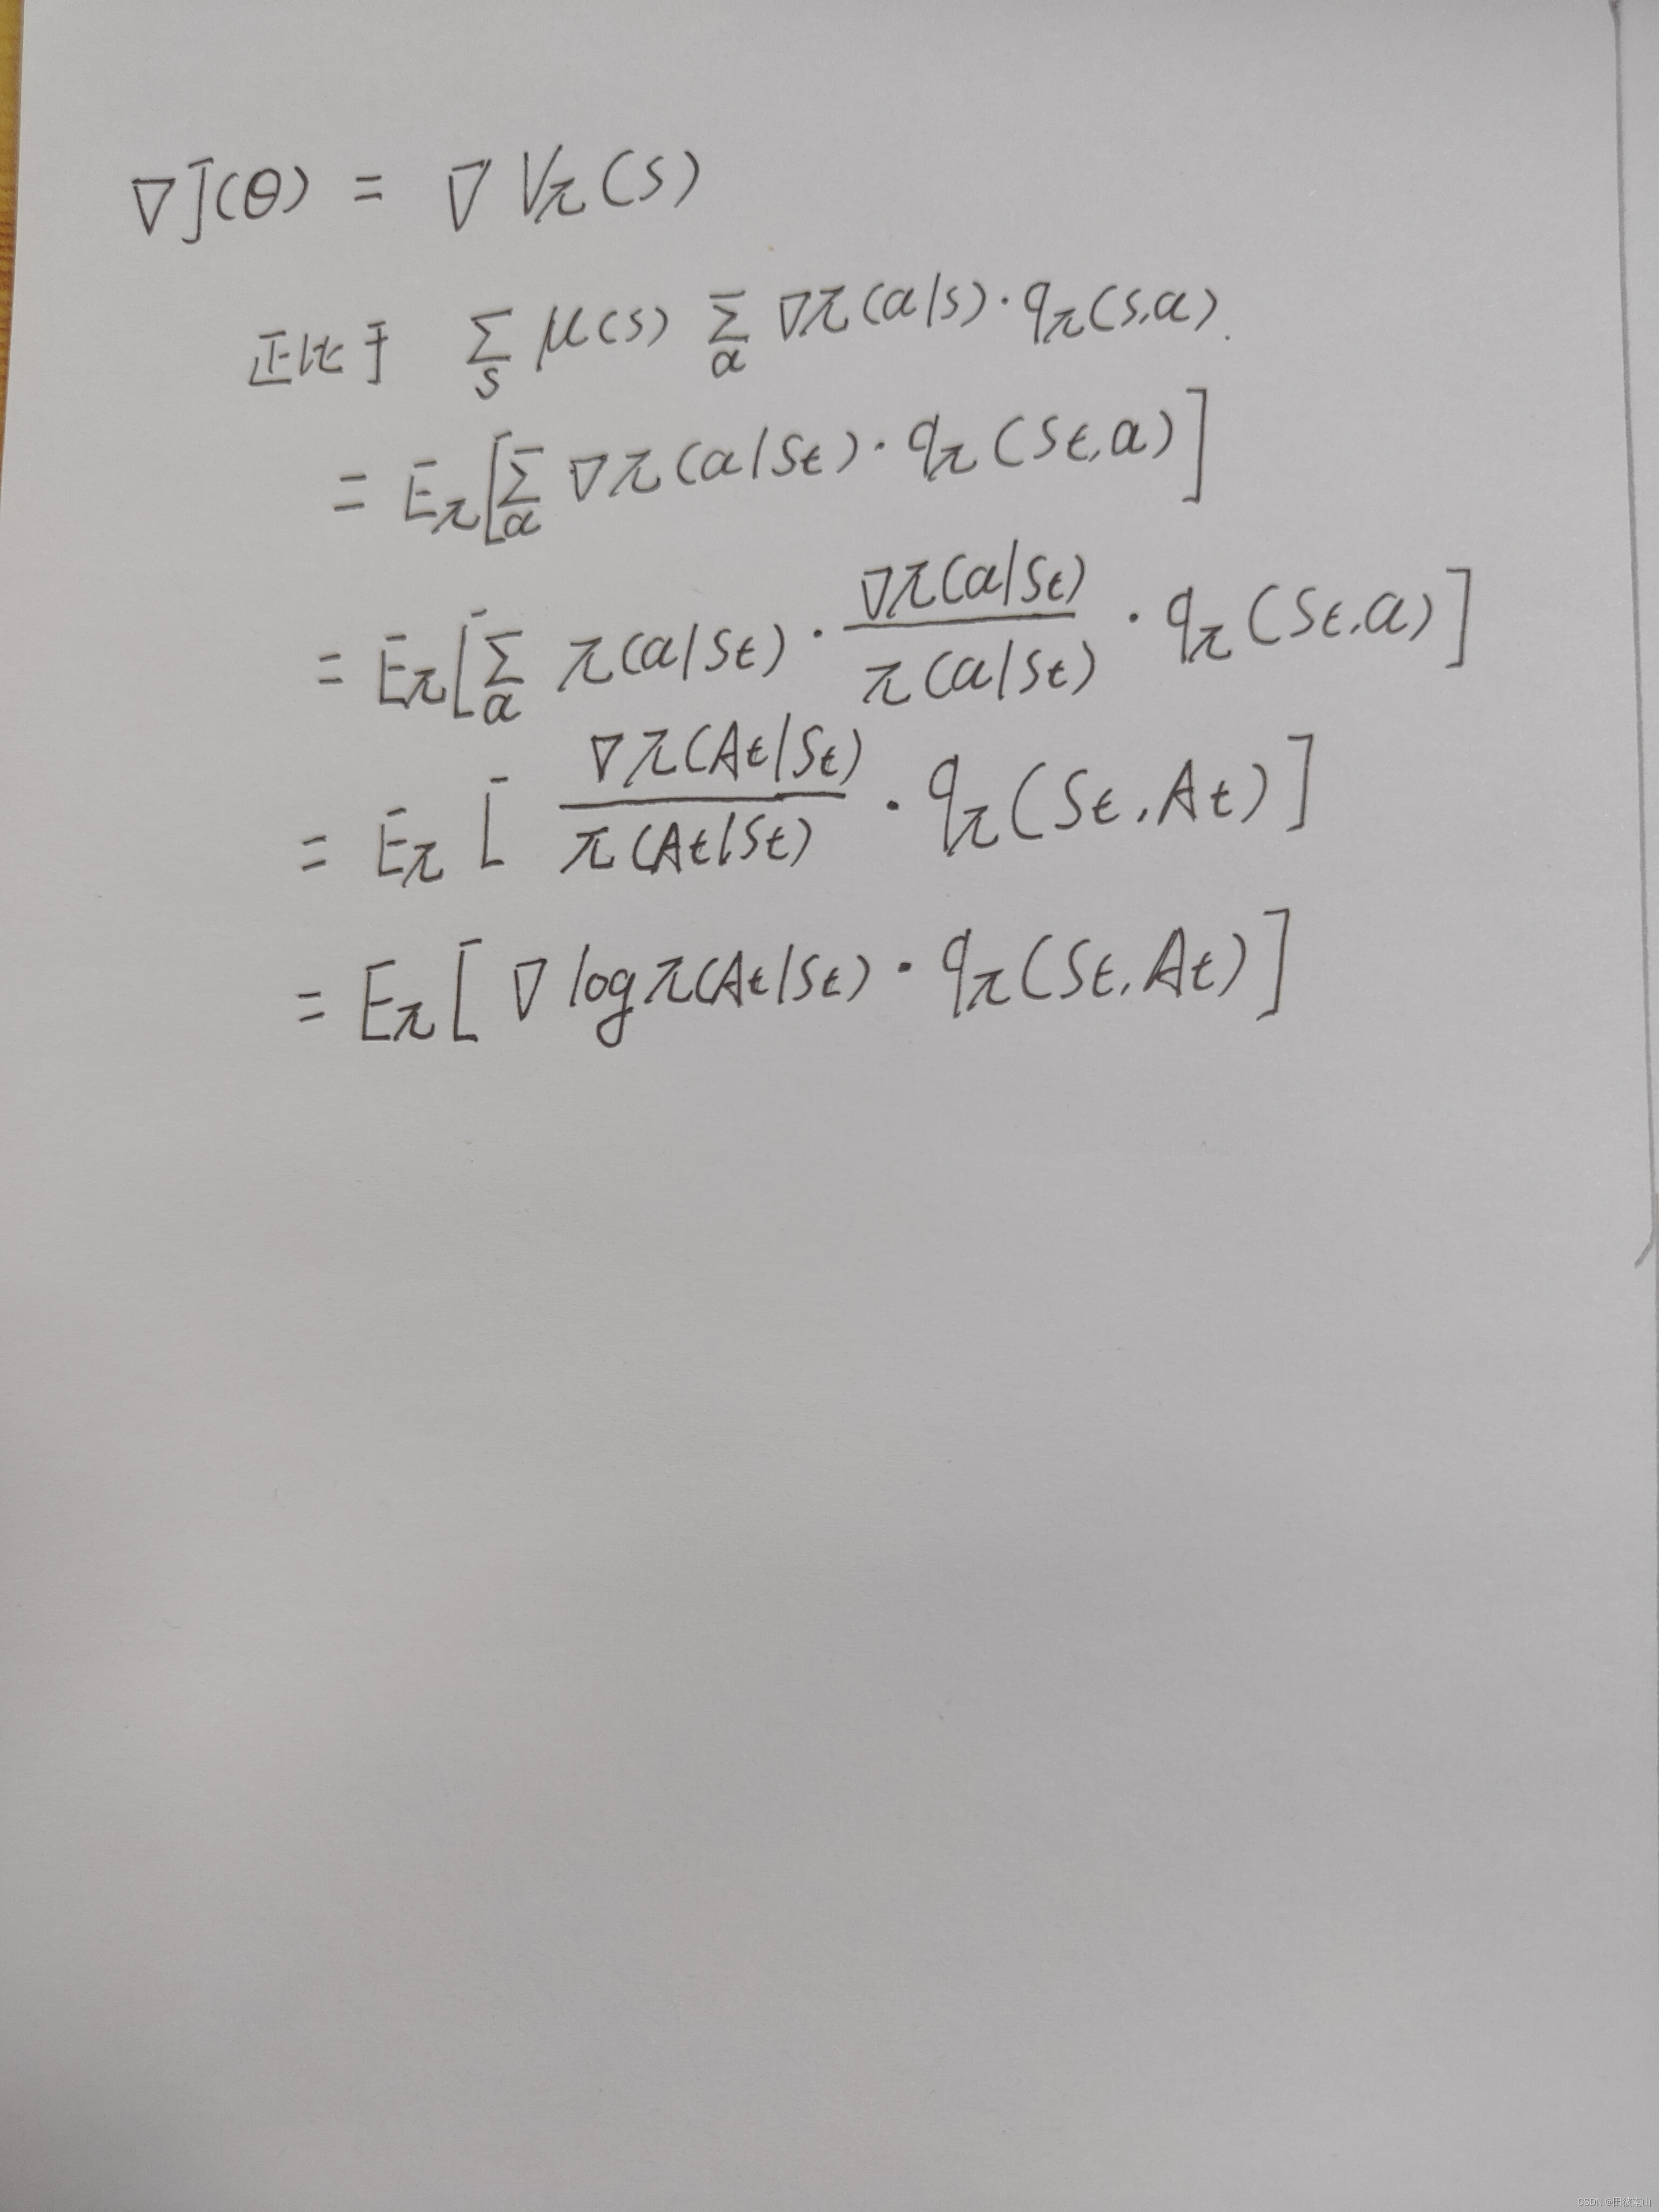 ∇J(θ) = ∇Vπ(s)
正比于 Σs μ(s) Σa ∇π(a|s)·qπ(s,a).
= Eπ[Σa ∇π(a|St)·qπ(St,a)]
= Eπ[Σa π(a|St)·∇π(a|St)/π(a|St)·qπ(St,a)]
= Eπ[∇π(At|St)/π(At|St)·qπ(St,At)]
= Eπ[∇logπ(At|St)·qπ(St,At)]